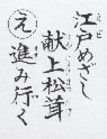 江戸めざし
献上松茸
え 進み行く